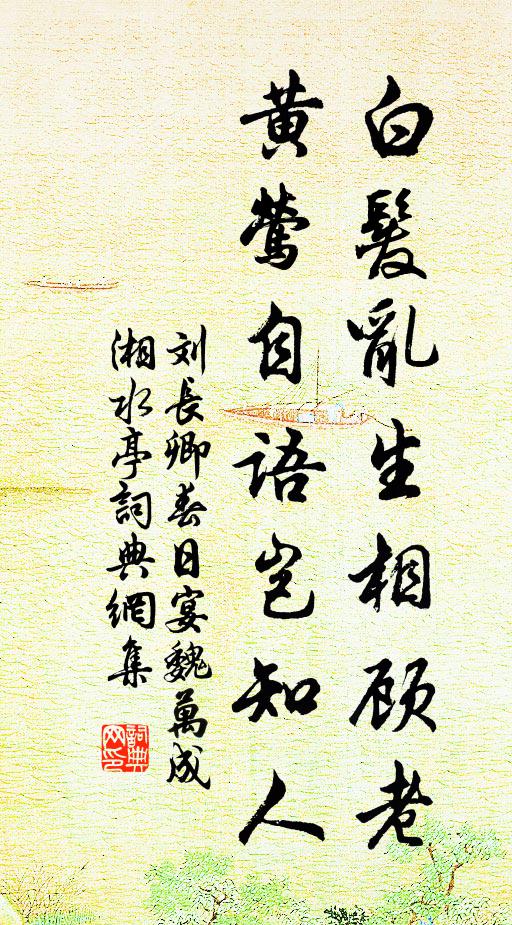 白髮亂生相顧老
黃鶯自語岂知人
刘長卿春日宴魏萬成
湘水亭詞典網集
詞典
网印